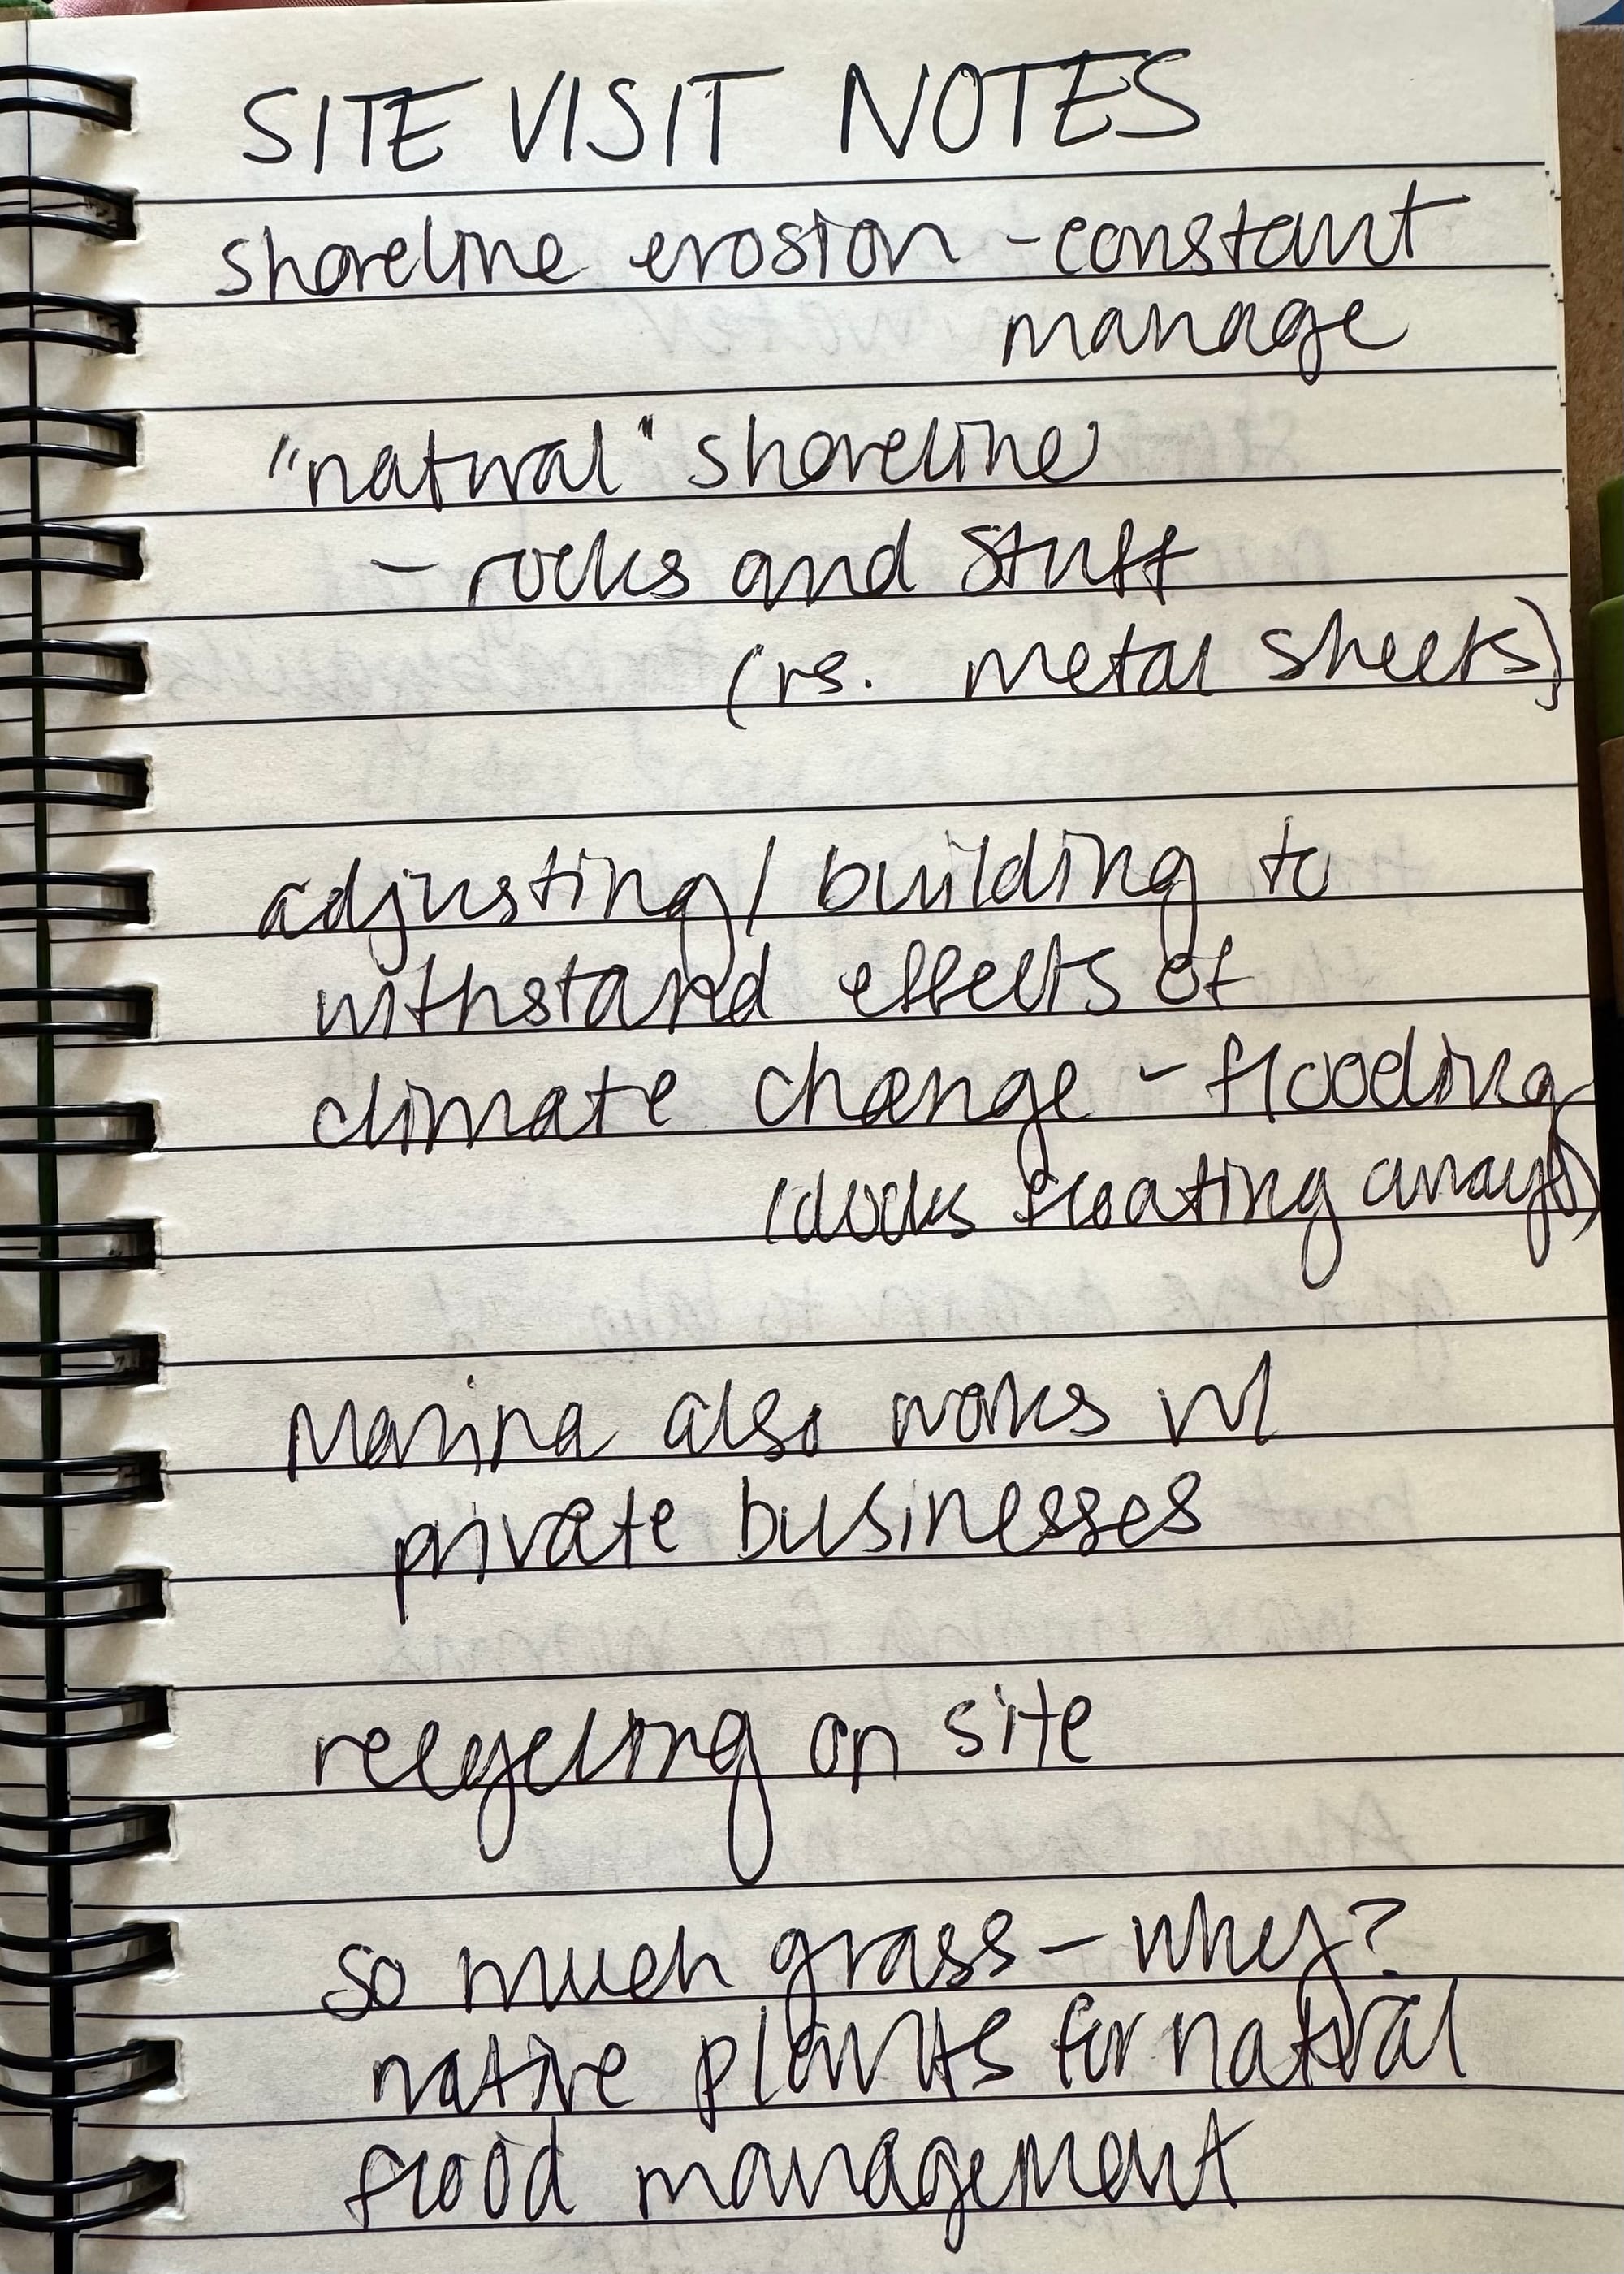 SITE VISIT NOTES
shoreline erosion - constant
manage
"natural" shoreline
- rocks and stuff
(vs. metal sheets)
adjusting / building to
withstand effects of
climate change - flooding
(docks floating away)
Marina also works w/
private businesses
recycling on site
so much grass - why?
native plants for natural
flood management